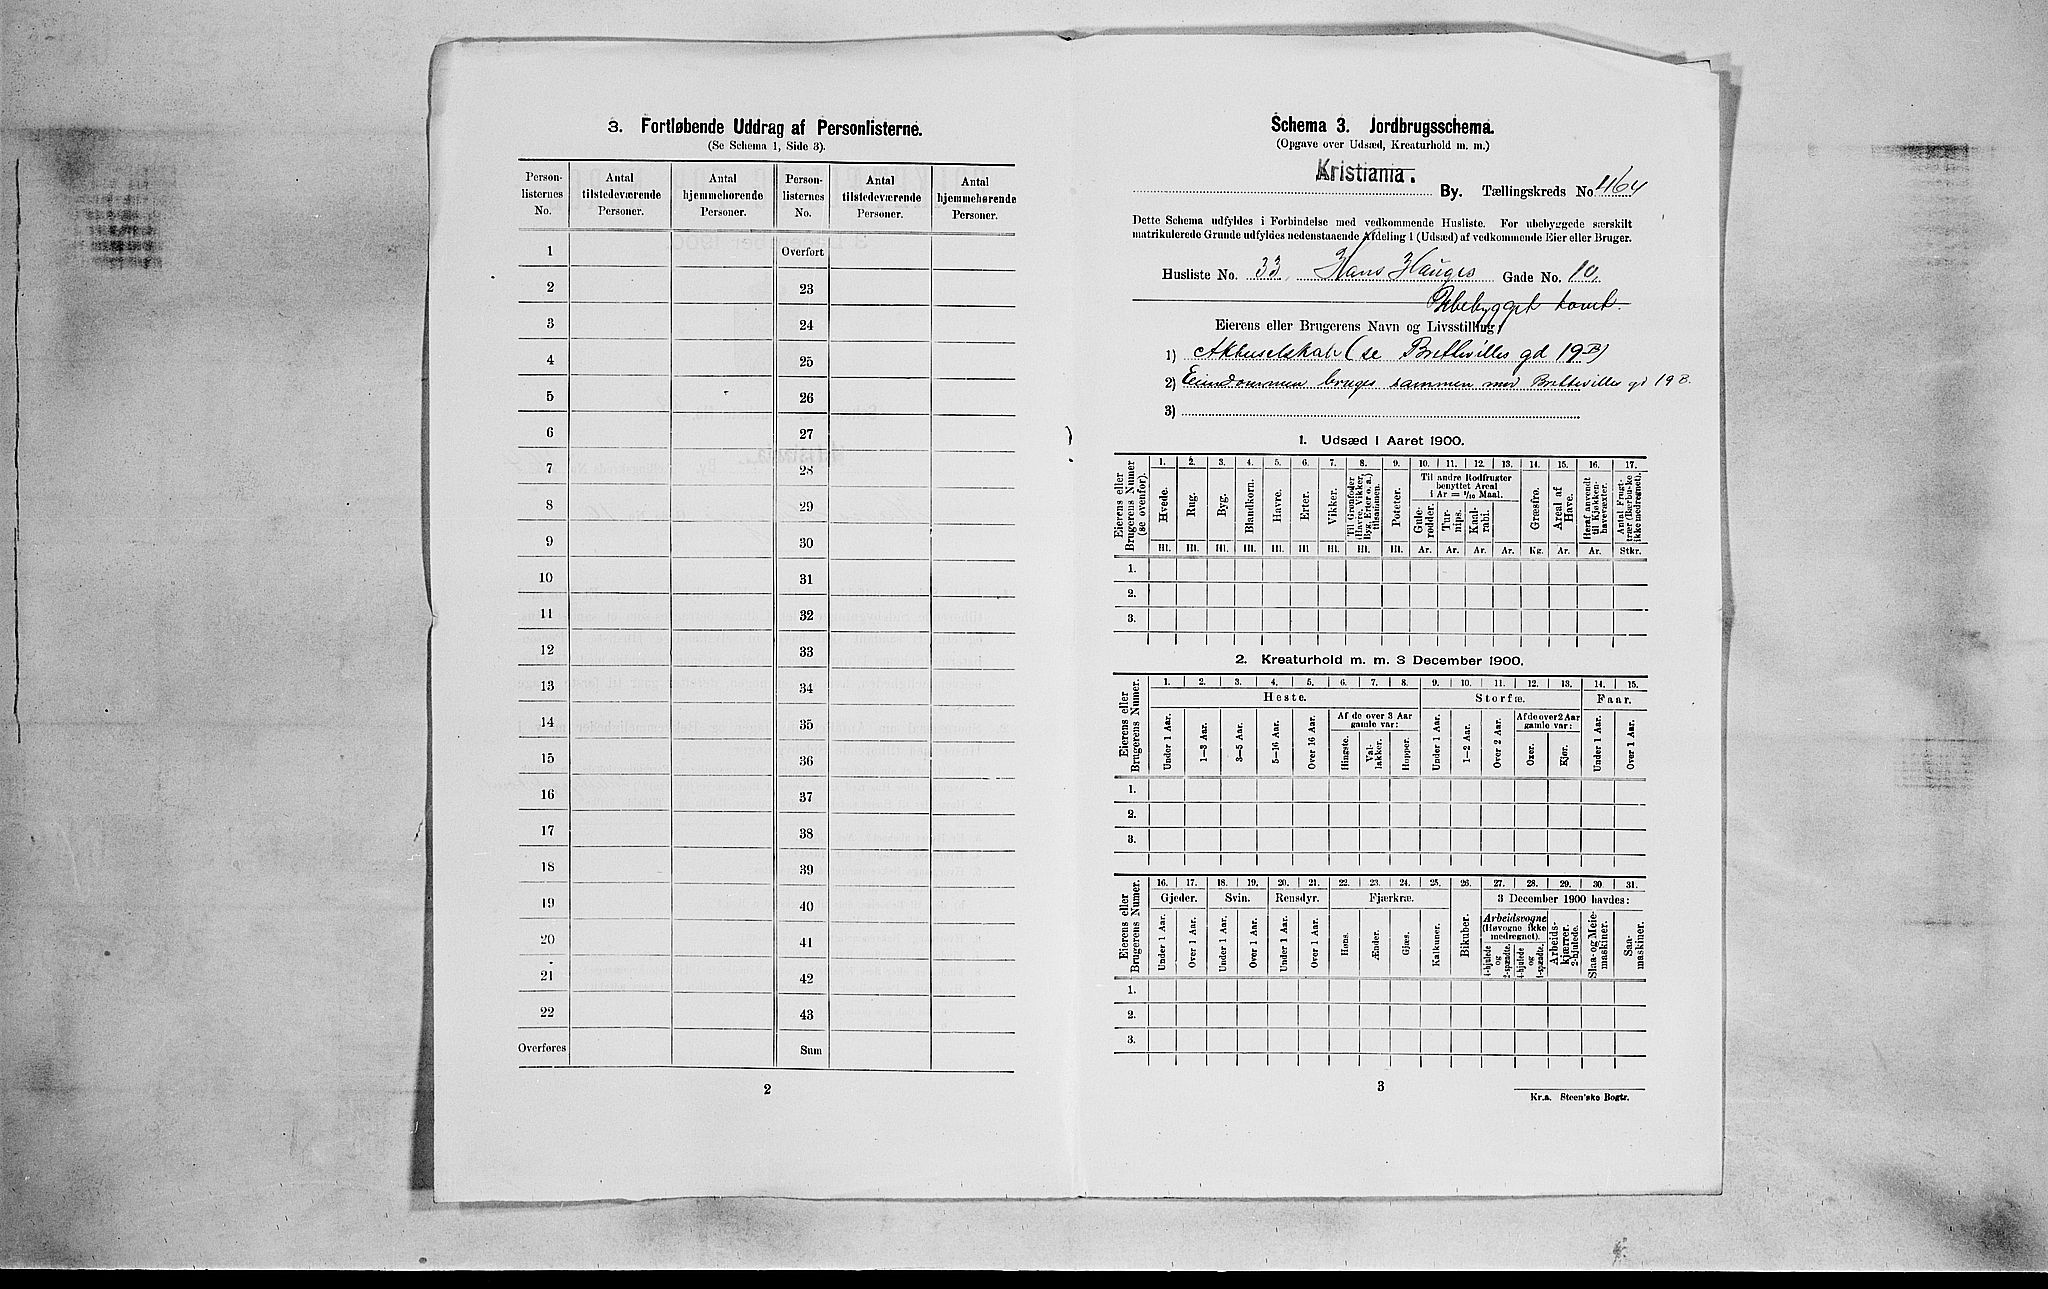 3. Fortløbende Uddrag af Personlisterne.
(Se Schema 1, Side 3).
Person-listernes No. | Antal tilstedeværende Personer. | Antal hjemmehørende Personer. | Person-listernes No. | Antal tilstedeværende Personer. | Antal hjemmehørende Personer.
1 Overført
2 23
3 24
4 25
5 26
6 27
7 28
8 29
9 30
10 31
11 32
12 33
13 34
14 35
15 36
16 37
17 38
18 39
19 40
20 41
21 42
22 43
Overføres Sum
2
Schema 3. Jordbrugsschema.
(Opgave over Udsæd, Kreaturhold m. m.)
Kristiania. By. Tællingskreds No. 164
Dette Schema udfyldes i Forbindelse med vedkommende Husliste. For ubebyggede særskilt
matrikulerede Grunde udfyldes nedenstaaende Afdeling 1 (Udsæd) af vedkommende Eier eller Bruger.
Husliste No. 33. Hans Hauges Gade No. 10.
Ubebygget tomt.
Eierens eller Brugerens Navn og Livsstilling:
1) Aktieselskab (se Brettevilles gd 19B)
2) Eiendommen bruges sammen med Brettevilles gd 19 B.
3)
1. Udsæd i Aaret 1900.
Eierens eller Brugerens Numer (se ovenfor).
1. 2. 3. 4. 5. 6. 7. 8. 9. 10. 11. 12. 13. 14. 15. 16. 17.
Hvede. Rug. Byg. Blandkorn. Havre. Erter. Vikker. Til Grønfoder (Havre, Vikker, Byg, Erter o. a.) tilsammen. Poteter.
Til andre Rodfrugter benyttet Areal i Ar = 1/10 Maal.
Gulerødder. Turnips. Kaalrabi.
Græsfrø. Areal af Have. Heraf anvendt til Kjøkkenhavevæxter. Antal Frugttrær (Bærbuske ikke medregnet).
Hl. Hl. Hl. Hl. Hl. Hl. Hl. Hl. Hl. Ar. Ar. Ar. Ar. Kg. Ar. Ar. Stkr.
1.
2.
3.
2. Kreaturhold m. m. 3 December 1900.
Eierens eller Brugerens Numer.
1. 2. 3. 4. 5. 6. 7. 8. 9. 10. 11. 12. 13. 14. 15.
Heste. Storfæ. Faar.
Af de over 3 Aar gamle var: Af de over 2 Aar gamle var:
Under 1 Aar. 1—3 Aar. 3—5 Aar. 5—16 Aar. Over 16 Aar. Hingste. Vallakker. Hopper. Under 1 Aar. 1—2 Aar. Over 2 Aar. Oxer. Kjør. Under 1 Aar. Over 1 Aar.
1.
2.
3.
Eierens eller Brugerens Numer.
16. 17. 18. 19. 20. 21. 22. 23. 24. 25. 26. 27. 28. 29. 30. 31.
Gjeder. Svin. Rensdyr. Fjærkræ. 3 December 1900 havdes:
Arbeidsvogne (Høvogne ikke medregnet).
Under 1 Aar. Over 1 Aar. Under 1 Aar. Over 1 Aar. Under 1 Aar. Over 1 Aar. Høns. Ænder. Gjæs. Kalkuner. Bikuber. 4-hjulede og 2-spændte. 4-hjulede og 1-spændte. Arbeidskjærrer, 2-hjulede. Slaa- og Meiemaskiner. Saamaskiner.
1.
2.
3.
3
Kr.a. Steen'ske Bogtr.